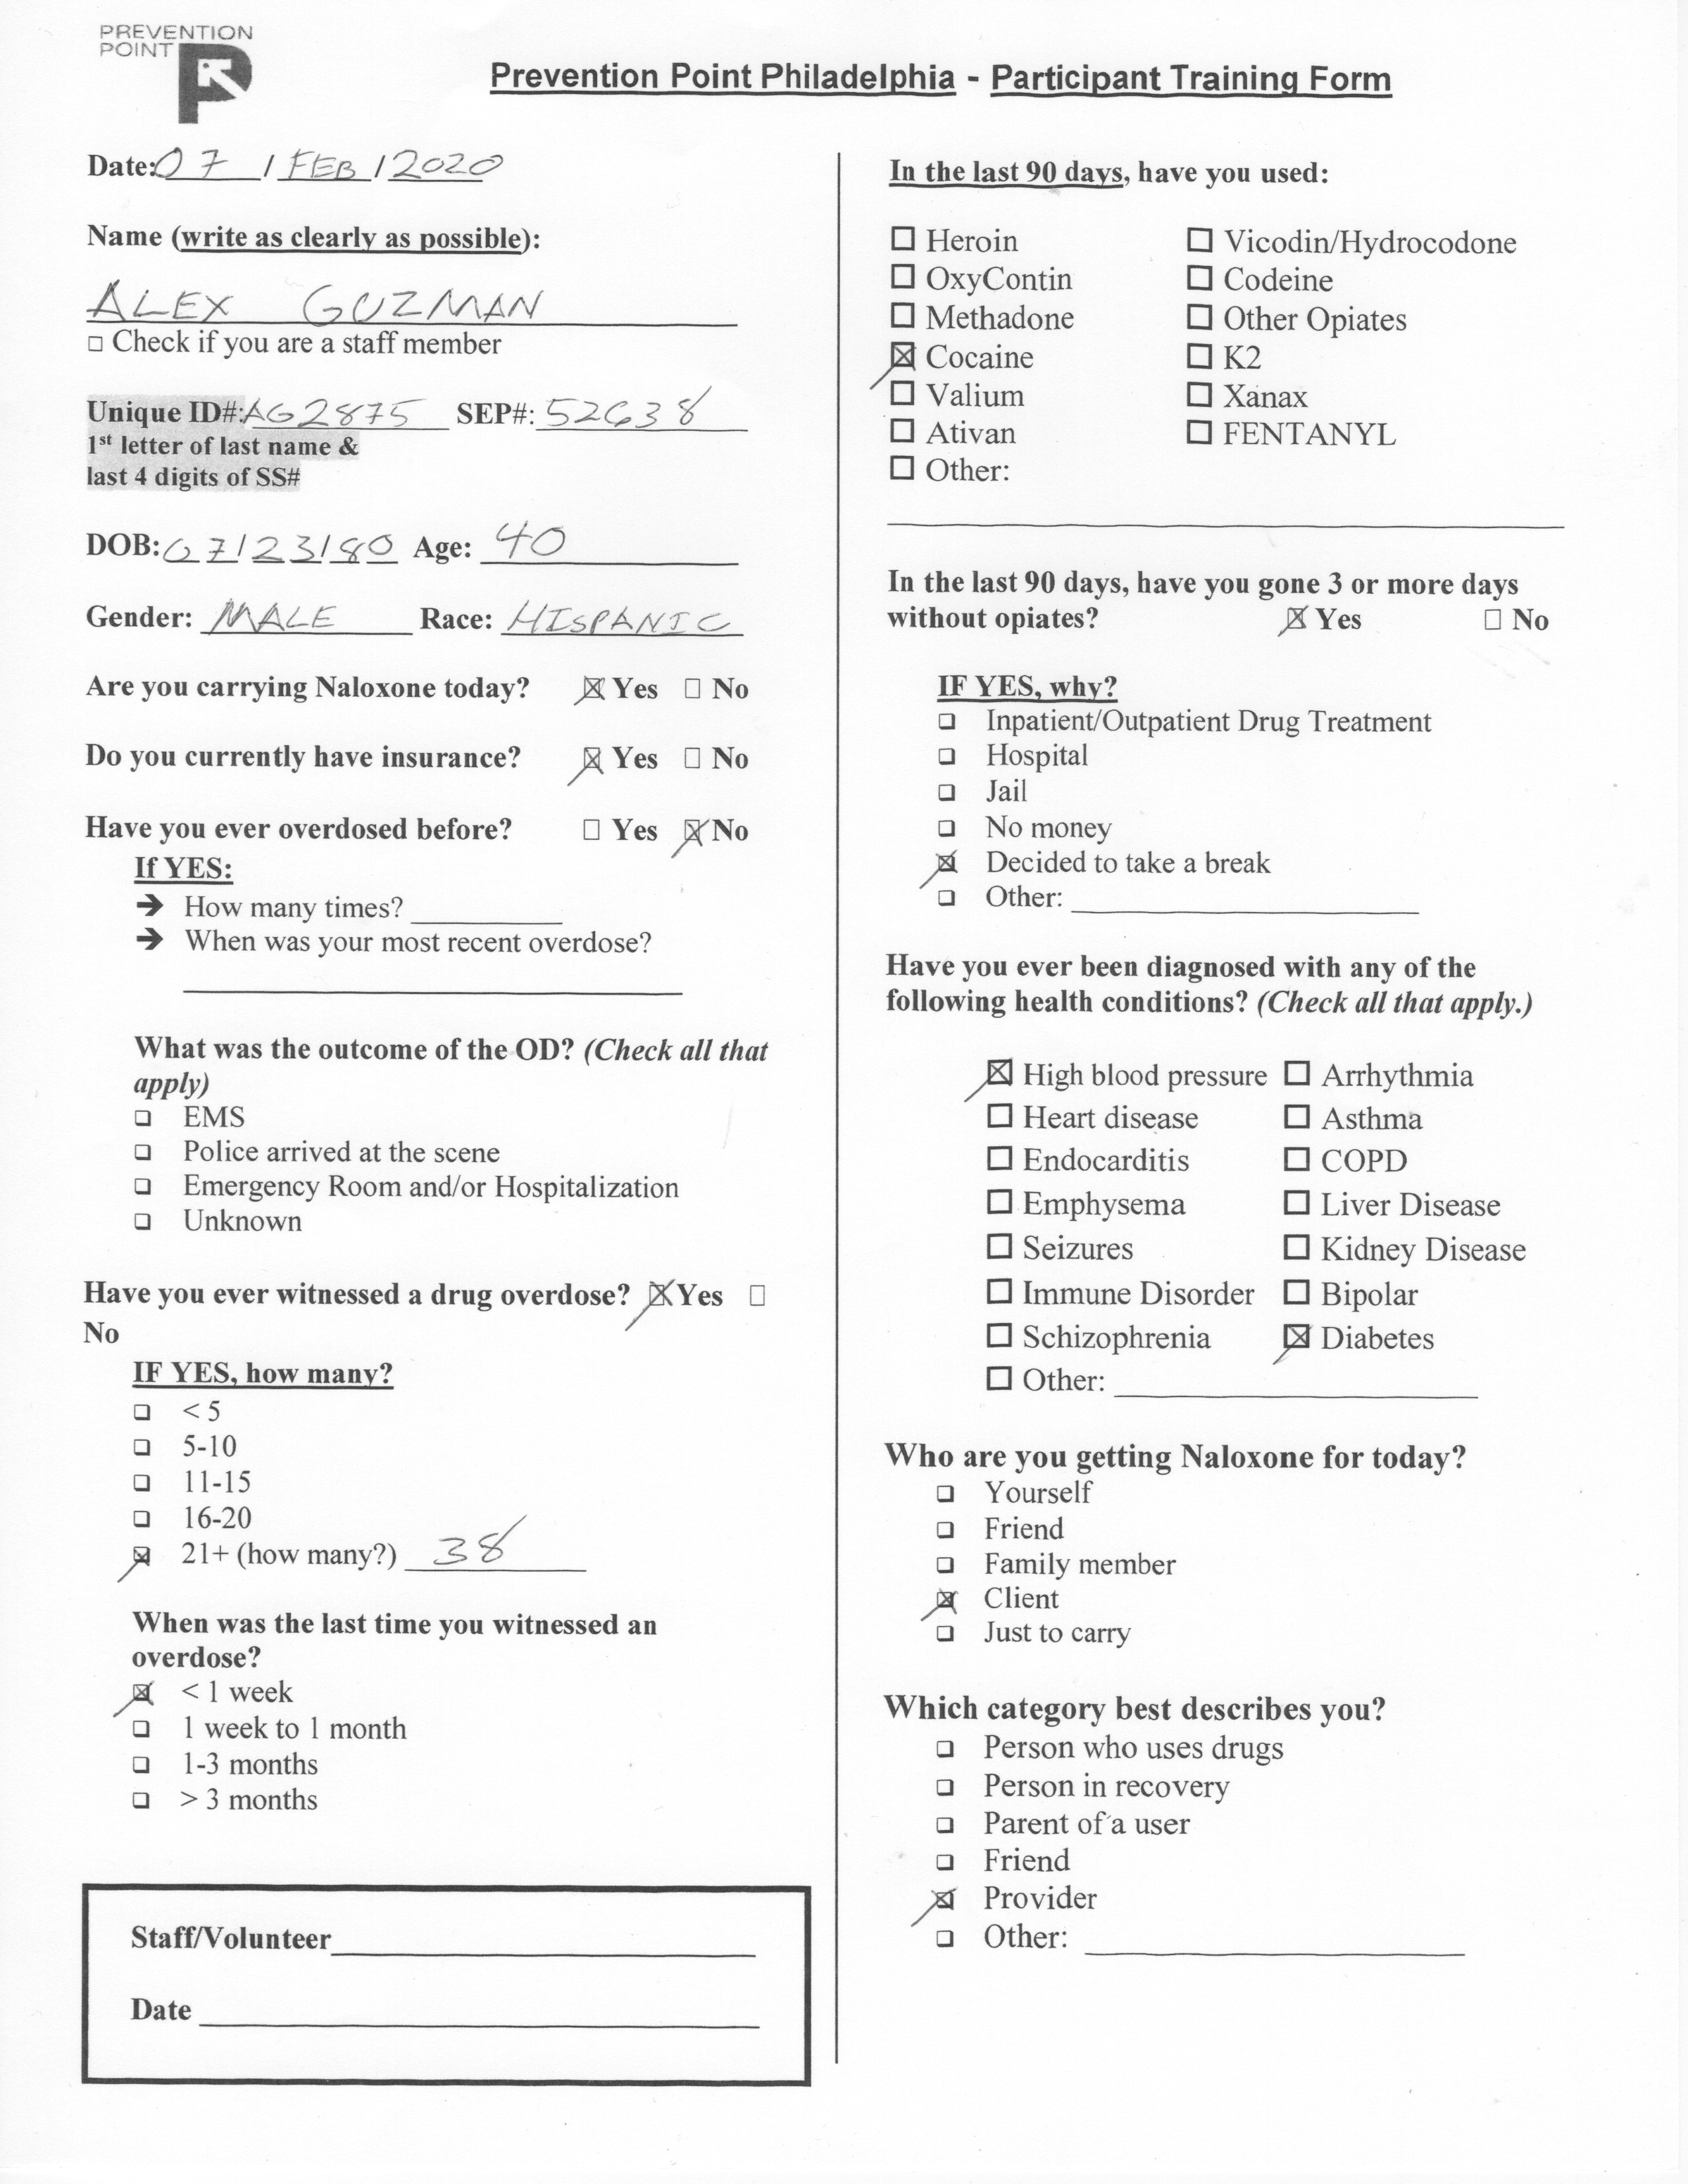 PREVENTION
POINT
Prevention Point Philadelphia - Participant Training Form
Date: 07 / FEB / 2020
Name (write as clearly as possible):
ALEX GUZMAN
☐ Check if you are a staff member
Unique ID#: AG2875 SEP#: 52638
1st letter of last name &
last 4 digits of SS#
DOB: 07/23/80 Age: 40
Gender: MALE Race: HISPANIC
Are you carrying Naloxone today? ☒ Yes ☐ No
Do you currently have insurance? ☒ Yes ☐ No
Have you ever overdosed before? ☐ Yes ☒ No
If YES:
➔ How many times? ____
➔ When was your most recent overdose?
What was the outcome of the OD? (Check all that
apply)
☐ EMS
☐ Police arrived at the scene
☐ Emergency Room and/or Hospitalization
☐ Unknown
Have you ever witnessed a drug overdose? ☒ Yes ☐
No
IF YES, how many?
☐ < 5
☐ 5-10
☐ 11-15
☐ 16-20
☒ 21+ (how many?) 38
When was the last time you witnessed an
overdose?
☒ < 1 week
☐ 1 week to 1 month
☐ 1-3 months
☐ > 3 months
Staff/Volunteer____
Date ____
In the last 90 days, have you used:
☐ Heroin ☐ Vicodin/Hydrocodone
☐ OxyContin ☐ Codeine
☐ Methadone ☐ Other Opiates
☒ Cocaine ☐ K2
☐ Valium ☐ Xanax
☐ Ativan ☐ FENTANYL
☐ Other:
In the last 90 days, have you gone 3 or more days
without opiates? ☒ Yes ☐ No
IF YES, why?
☐ Inpatient/Outpatient Drug Treatment
☐ Hospital
☐ Jail
☐ No money
☒ Decided to take a break
☐ Other: ____
Have you ever been diagnosed with any of the
following health conditions? (Check all that apply.)
☒ High blood pressure ☐ Arrhythmia
☐ Heart disease ☐ Asthma
☐ Endocarditis ☐ COPD
☐ Emphysema ☐ Liver Disease
☐ Seizures ☐ Kidney Disease
☐ Immune Disorder ☐ Bipolar
☐ Schizophrenia ☒ Diabetes
☐ Other: ____
Who are you getting Naloxone for today?
☐ Yourself
☐ Friend
☐ Family member
☒ Client
☐ Just to carry
Which category best describes you?
☐ Person who uses drugs
☐ Person in recovery
☐ Parent of a user
☐ Friend
☒ Provider
☐ Other: ____